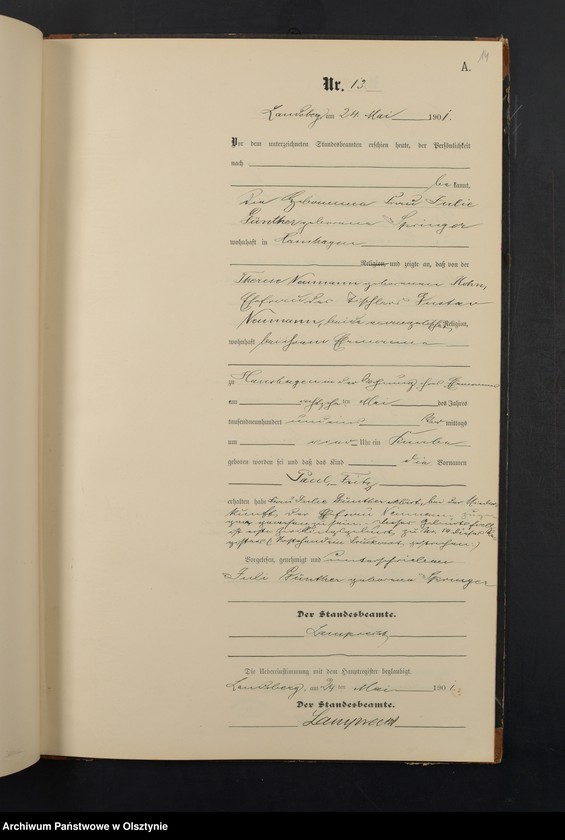 14
A.
Nr. 13
Landsberg am 24 Mai 1901.
Vor dem unterzeichneten Standesbeamten erschien heute, der Persönlichkeit
nach
be kannt,
die Hebamme Frau Julie
Günther geborene Springer
wohnhaft in Hanshagen
Religion, und zeigte an, daß von der
Therese Neumann geborenen
Ehefrau des Tischlers Gustav
Neumann, beide evangelischer Religion,
wohnhaft bei ihrem Ehemanne
zu Hanshagen in der Wohnung ihres Ehemannes
am achtzehnten Mai des Jahres
tausendneunhundert und eins Vor mittags
um zwei Uhr ein Knabe
geboren worden sei und daß das Kind die Vornamen
Paul Fritz
erhalten habe. Frau Julie Günther erklärt, bei der Nieder-
kunft der Ehefrau Neumann zuge-
gen gewesen zu sein. Dieser Geburtsfall
ist erste Zwillingsgeburt, zu Nr. 14 dieses Re-
gisters. (Vorstehendem Druckwort gestrichen.)
Vorgelesen, genehmigt und unterschrieben
Julie Günther geborene Springer
Der Standesbeamte.
Lamprecht
Die Uebereinstimmung mit dem Hauptregister beglaubigt.
Landsberg, am 24 ten Mai 1901.
Der Standesbeamte.
Lamprecht
Archiwum Państwowe w Olsztynie